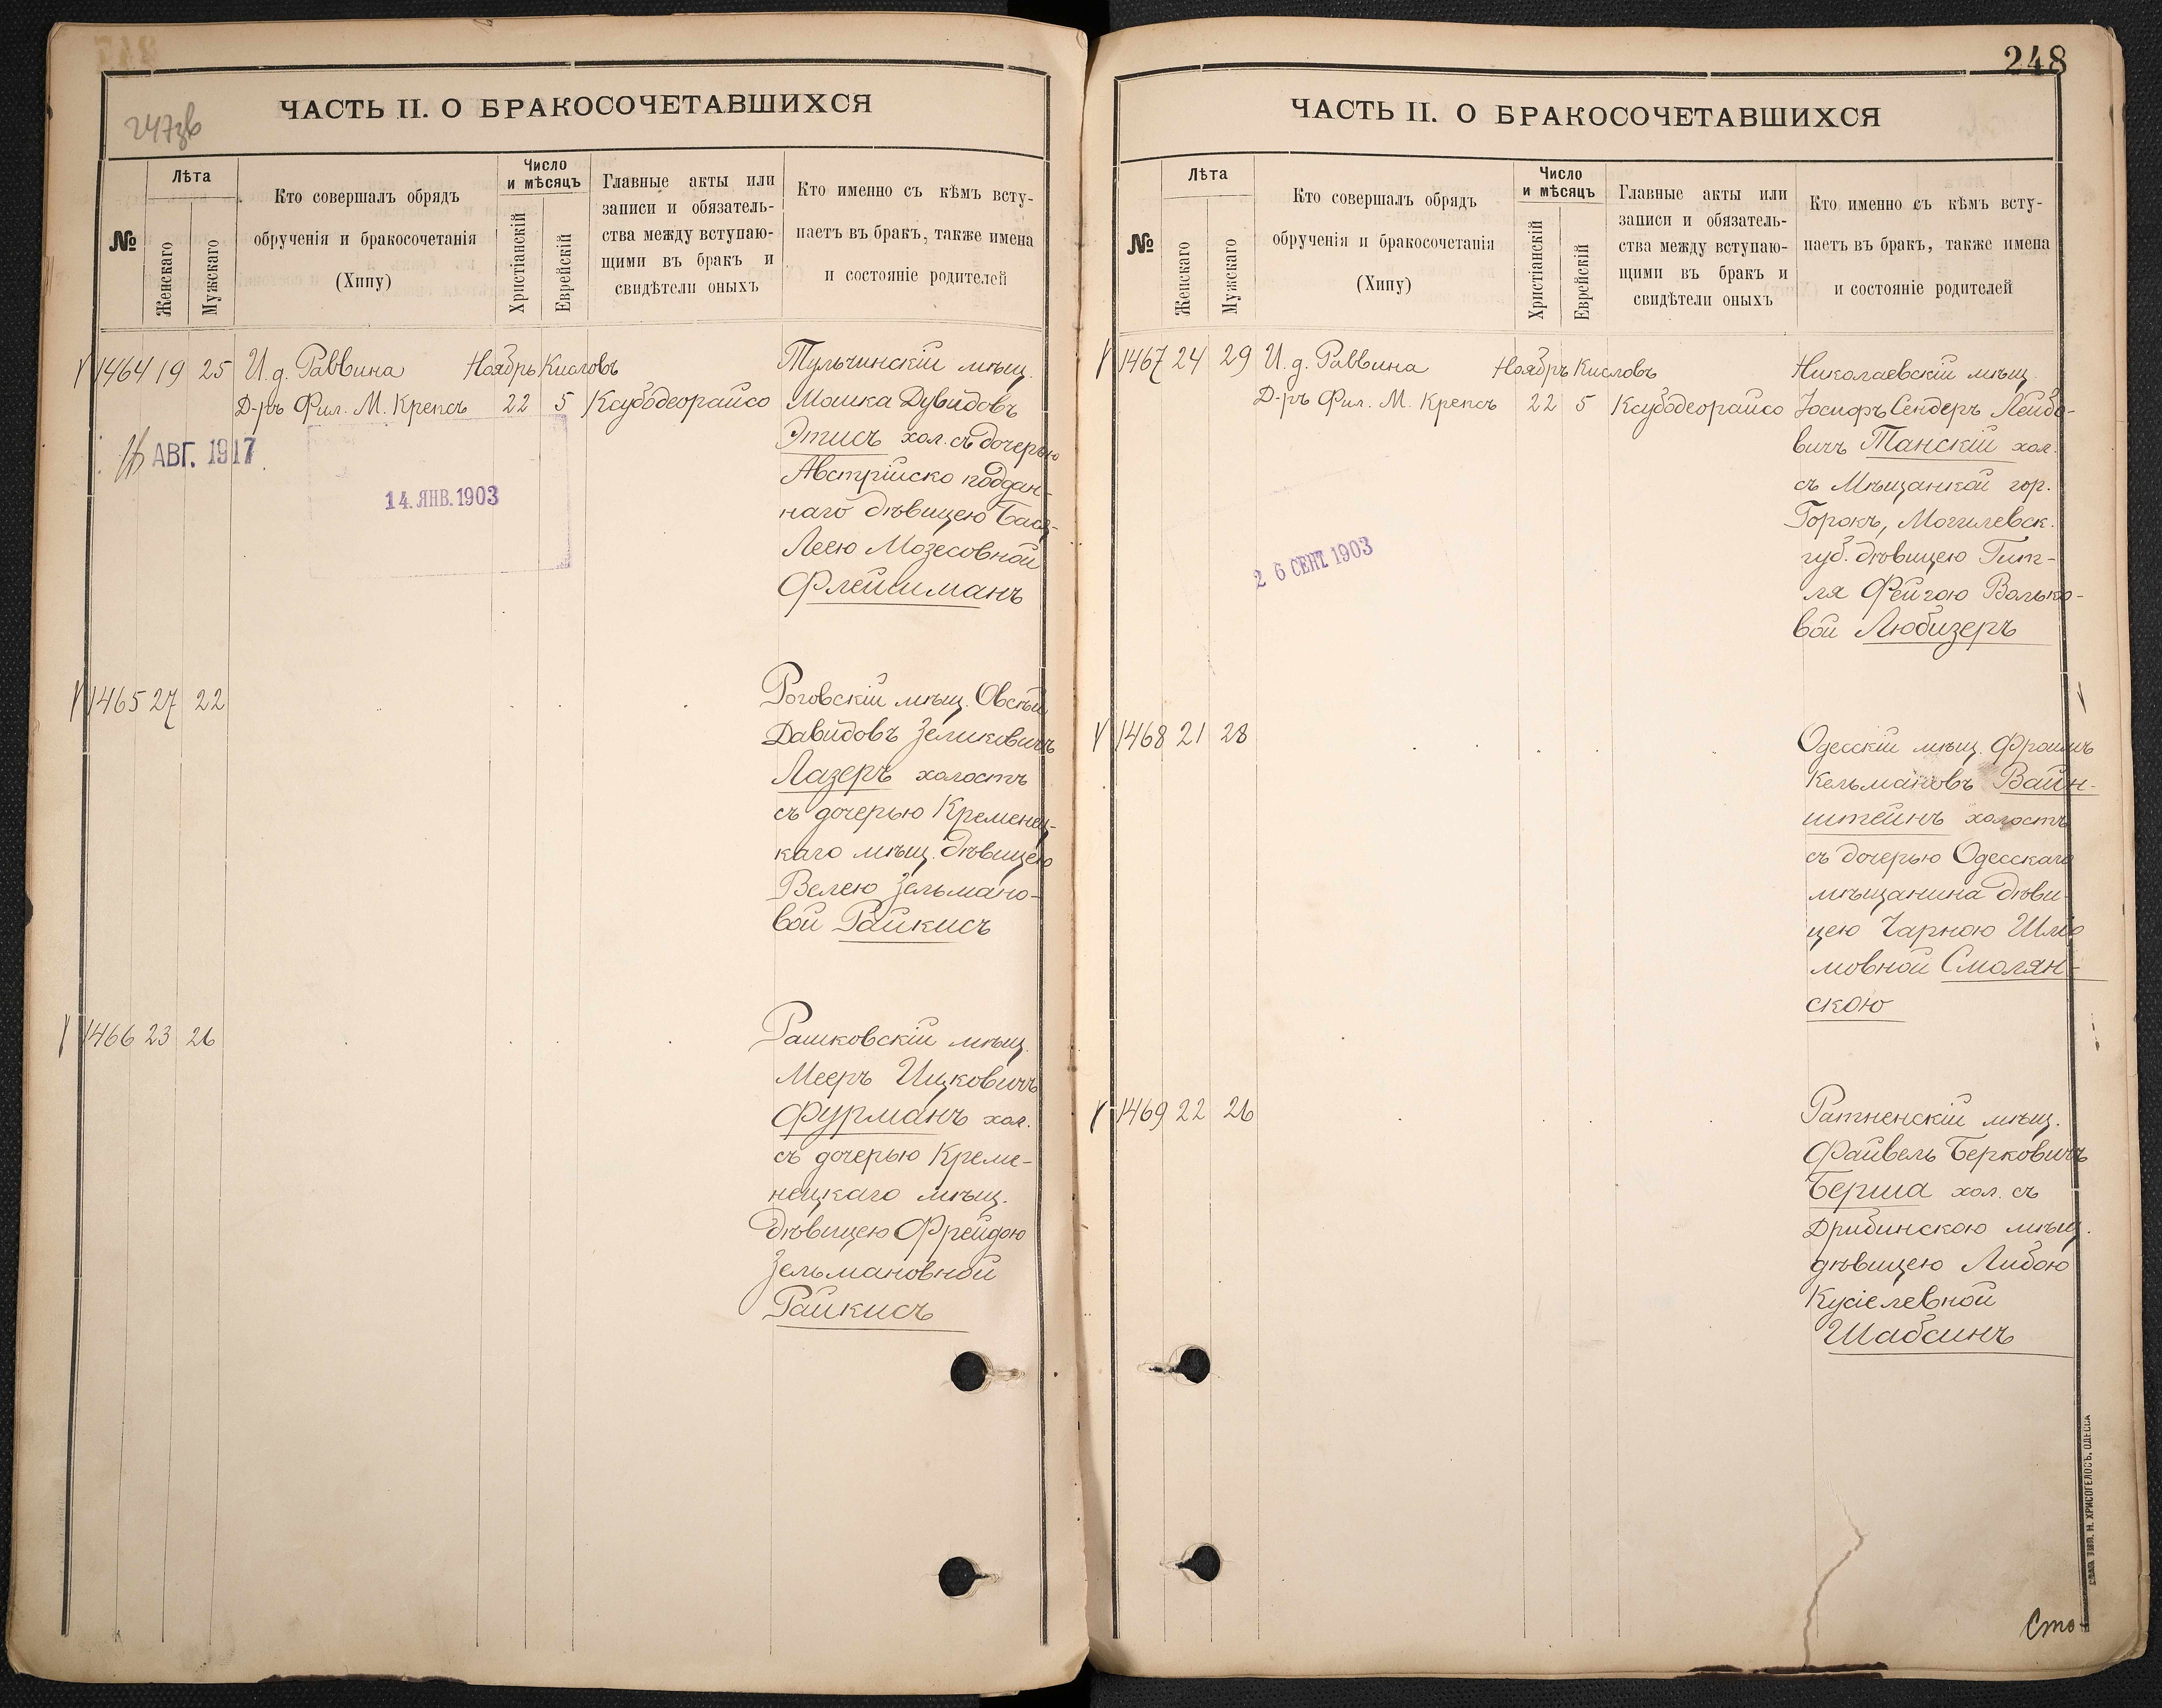 247зв
ЧАСТЬ II. О БРАКОСОЧЕТАВШИХСЯ
№
Лѣта
Женскаго
Мужскаго
Кто совершалъ обрядъ
обрученія и бракосочетанія
(Хипу)
Число
и мѣсяцъ
Христіанскій
Еврейскій
Главные акты или
записи и обязатель-
ства между вступаю-
щими въ бракъ и
свидѣтели оныхъ
Кто именно съ кѣмъ всту-
паетъ въ бракъ, также имена
и состояніе родителей
1464 19 25 И. д. Раввина Ноябрь Кисловъ Тульчинскій мѣщ.
Д-ръ Фил. М. Крепсъ 22 5 Ксубодеорайсо Мошка Дувидовъ
Этисъ хол. съ дочерью
Австрійско поддан-
наго дѣвицею Бася-
Леею Мозесовной
Флейшманъ
16 АВГ. 1917
14. ЯНВ. 1903
1465 27 22 Роговскій мѣщ. Овсѣй
Давидовъ Зеликовичъ
Лазеръ холостъ
съ дочерью Кременец-
каго мѣщ. дѣвицею
Велею Зельмано-
вой Райкисъ
1466 23 26 Рашковскій мѣщ.
Мееръ Ицковичъ
Фурманъ хол.
съ дочерью Креме-
нецкаго мѣщ.
дѣвицею Фрейдою
Зельмановной
Райкисъ
248
ЧАСТЬ II. О БРАКОСОЧЕТАВШИХСЯ
№
Лѣта
Женскаго
Мужскаго
Кто совершалъ обрядъ
обрученія и бракосочетанія
(Хипу)
Число
и мѣсяцъ
Христіанскій
Еврейскій
Главные акты или
записи и обязатель-
ства между вступаю-
щими въ бракъ и
свидѣтели оныхъ
Кто именно съ кѣмъ всту-
паетъ въ бракъ, также имена
и состояніе родителей
1467 24 29 И. д. Раввина Ноябрь Кисловъ Николаевскій мѣщ.
Д-ръ Фил. М. Крепсъ 22 5 Ксубодеорайсо Іосифъ Сендеръ Лейбо-
вичъ Танскій хол.
съ Мѣщанкой гор.
Горокъ, Могилевск.
губ. дѣвицею Гит-
ля Фейгою Волько-
вой Любизеръ
26 СЕНТ 1903
1468 21 28 Одесскій мѣщ. Фроимъ
Кельмановъ Вайн-
штейнъ холостъ
съ дочерью Одесскаго
мѣщанина дѣви-
цею Чарною Шлио
мовной Смолян-
скою
1469 22 26 Ратненскій мѣщ.
Файвель Берковичъ
Берша хол. съ
Дрибинскою мѣщ.
дѣвицею Либою
Кусіелевной
Шабсинъ
Сто-
ТИП. Н. ХРИСОГЕЛОСЪ, ОДЕССА